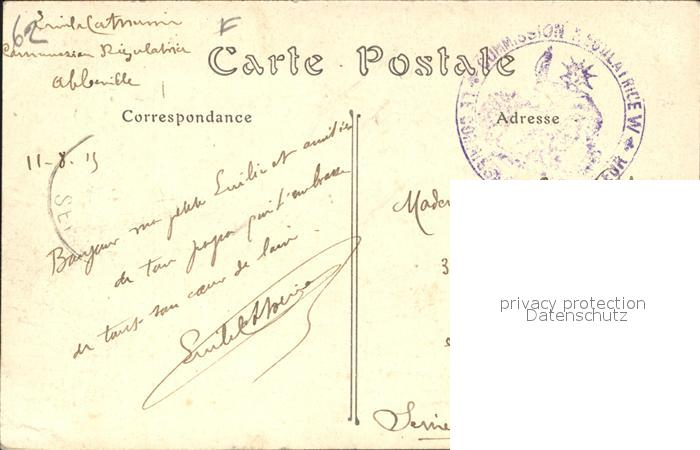 62
F
Emile
Commission Régulatrice
Abbeville
Carte Postale
COMMISSION RÉGULATRICE W
LE
Correspondance
Adresse
11-8.15
SE
Bonjour ma petite Emilie et amitiés
de ton papa qui t'embrasse
de tout son cœur de loin.
Emile
Madem
3
privacy protection
Datenschutz
Seine